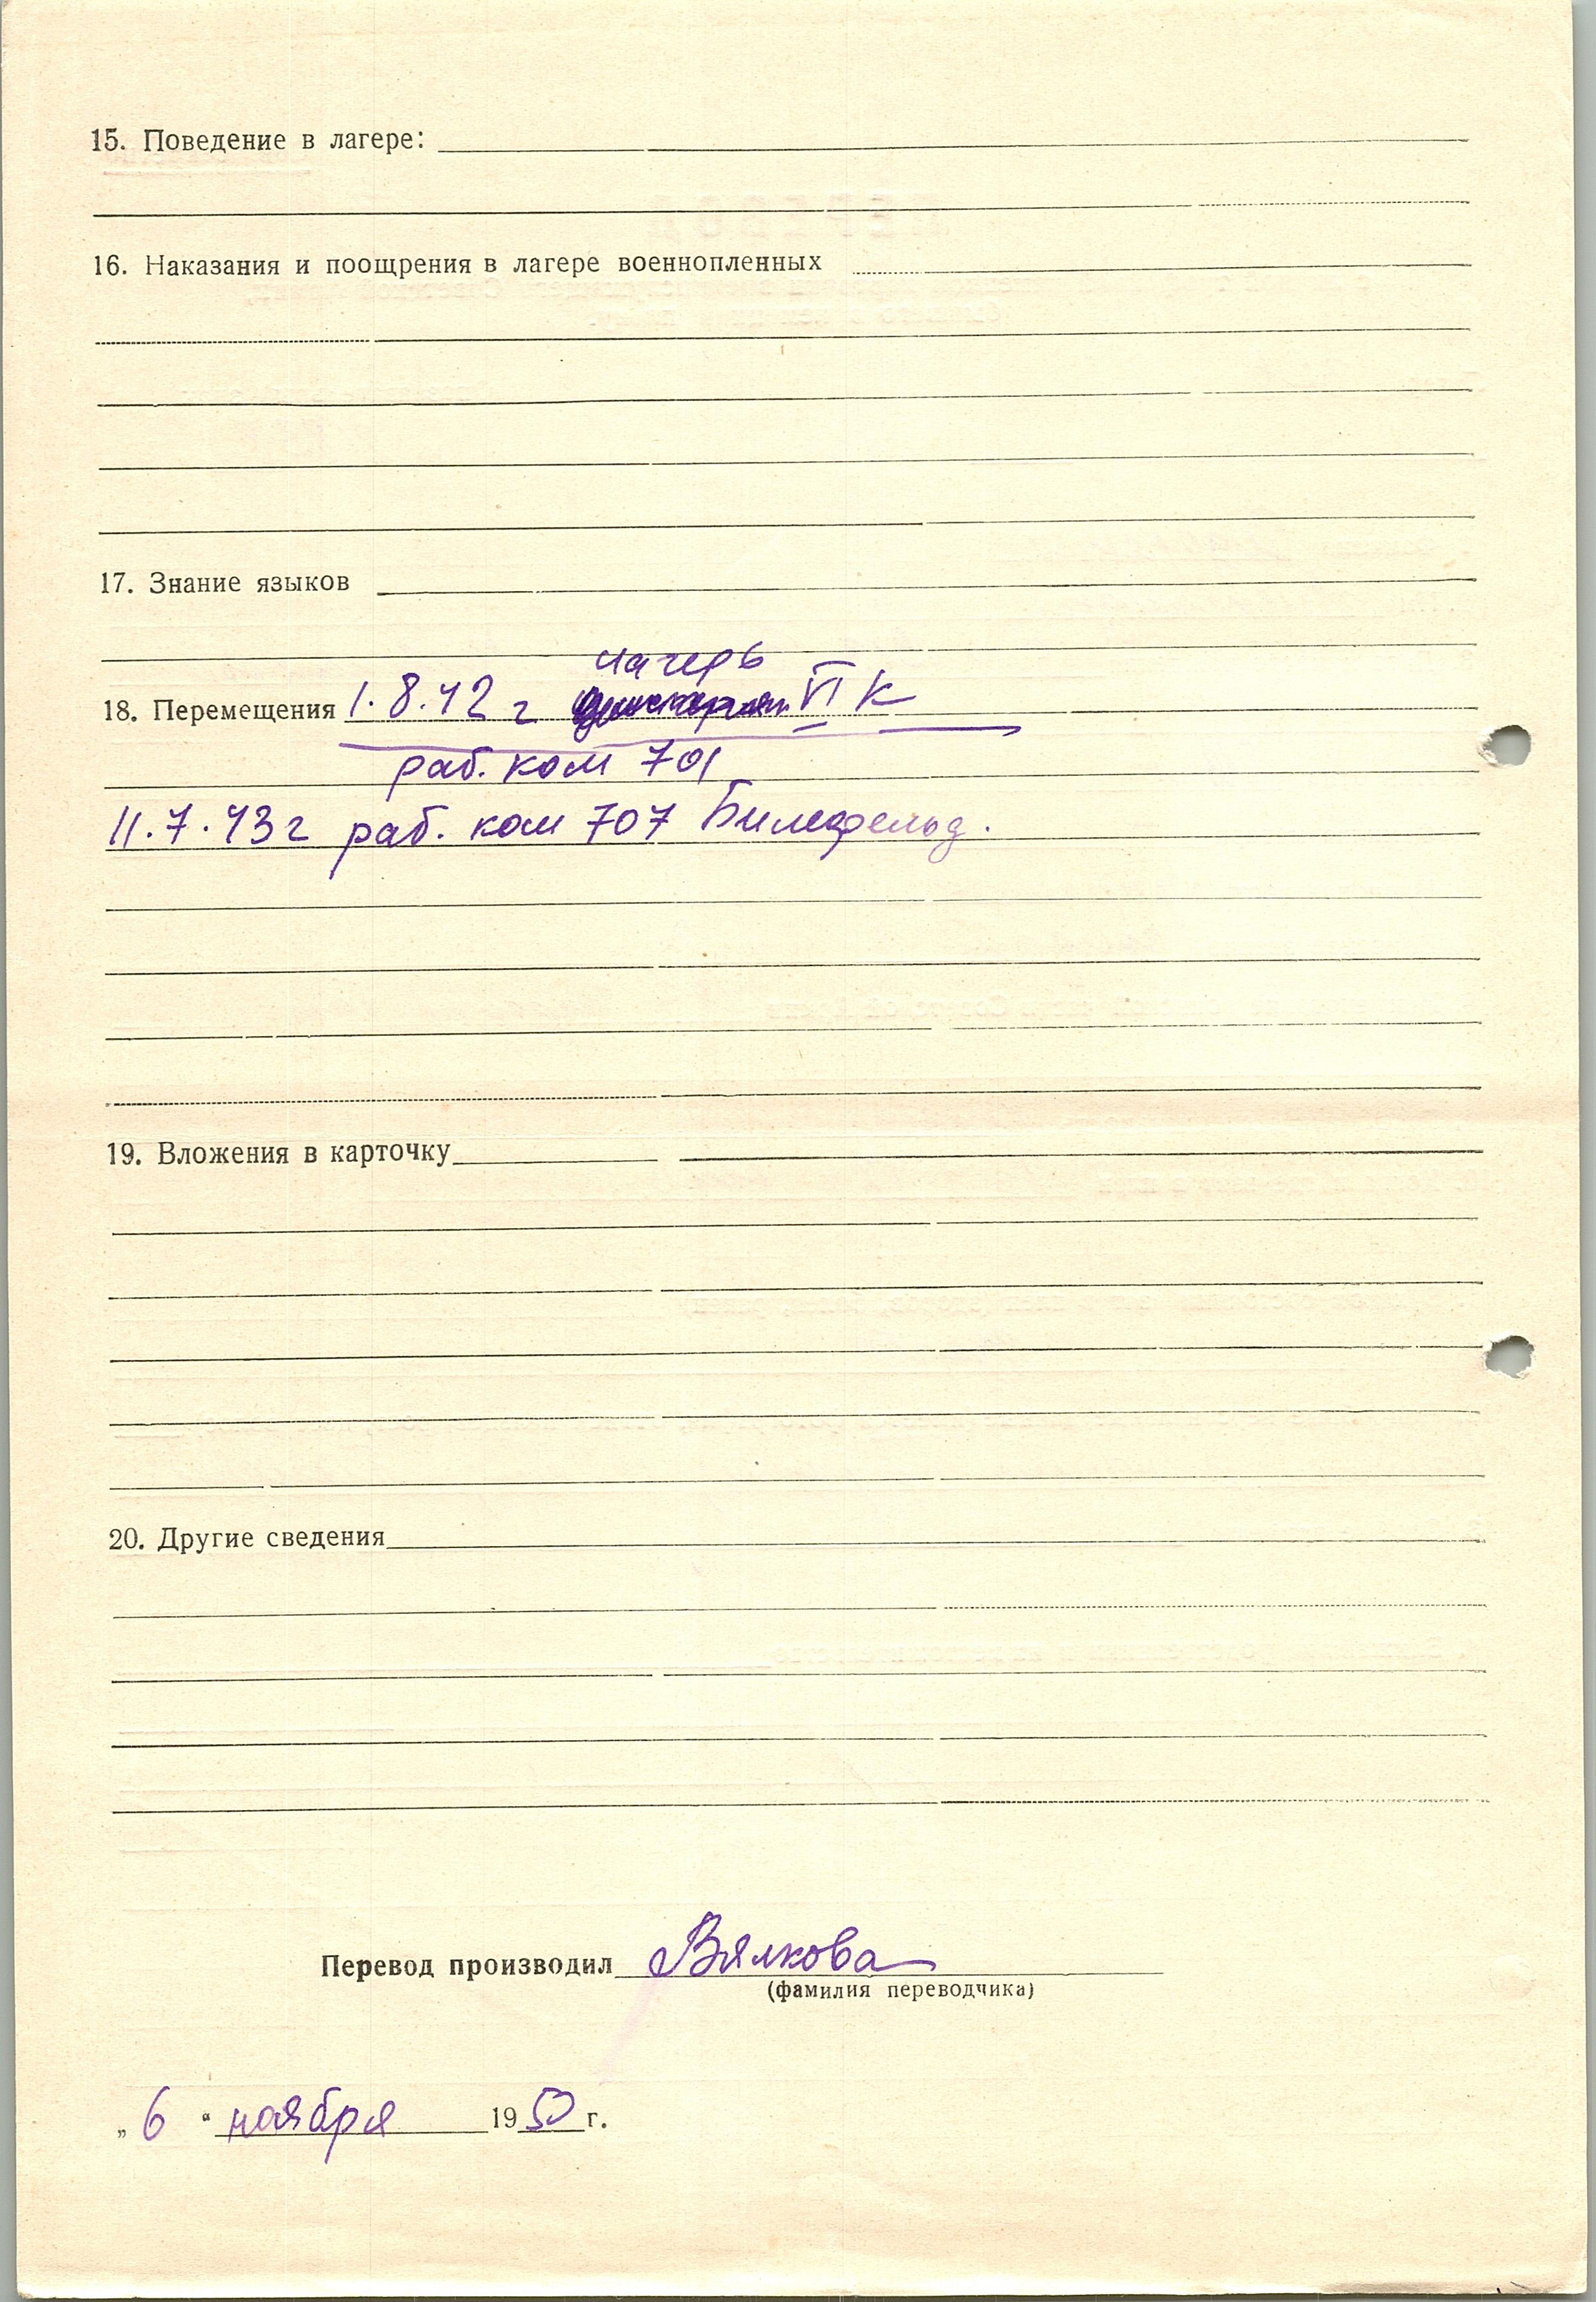 15. Поведение в лагере:
16. Наказания и поощрения в лагере военнопленных
17. Знание языков
лагерь
18. Перемещения 1.8.42 г VI К
раб. ком 701
11.7.43 г раб. ком 707 Билефельд.
19. Вложения в карточку
20. Другие сведения
Перевод производил Вялкова
(фамилия переводчика)
„ 6 “ ноября 1950 г.